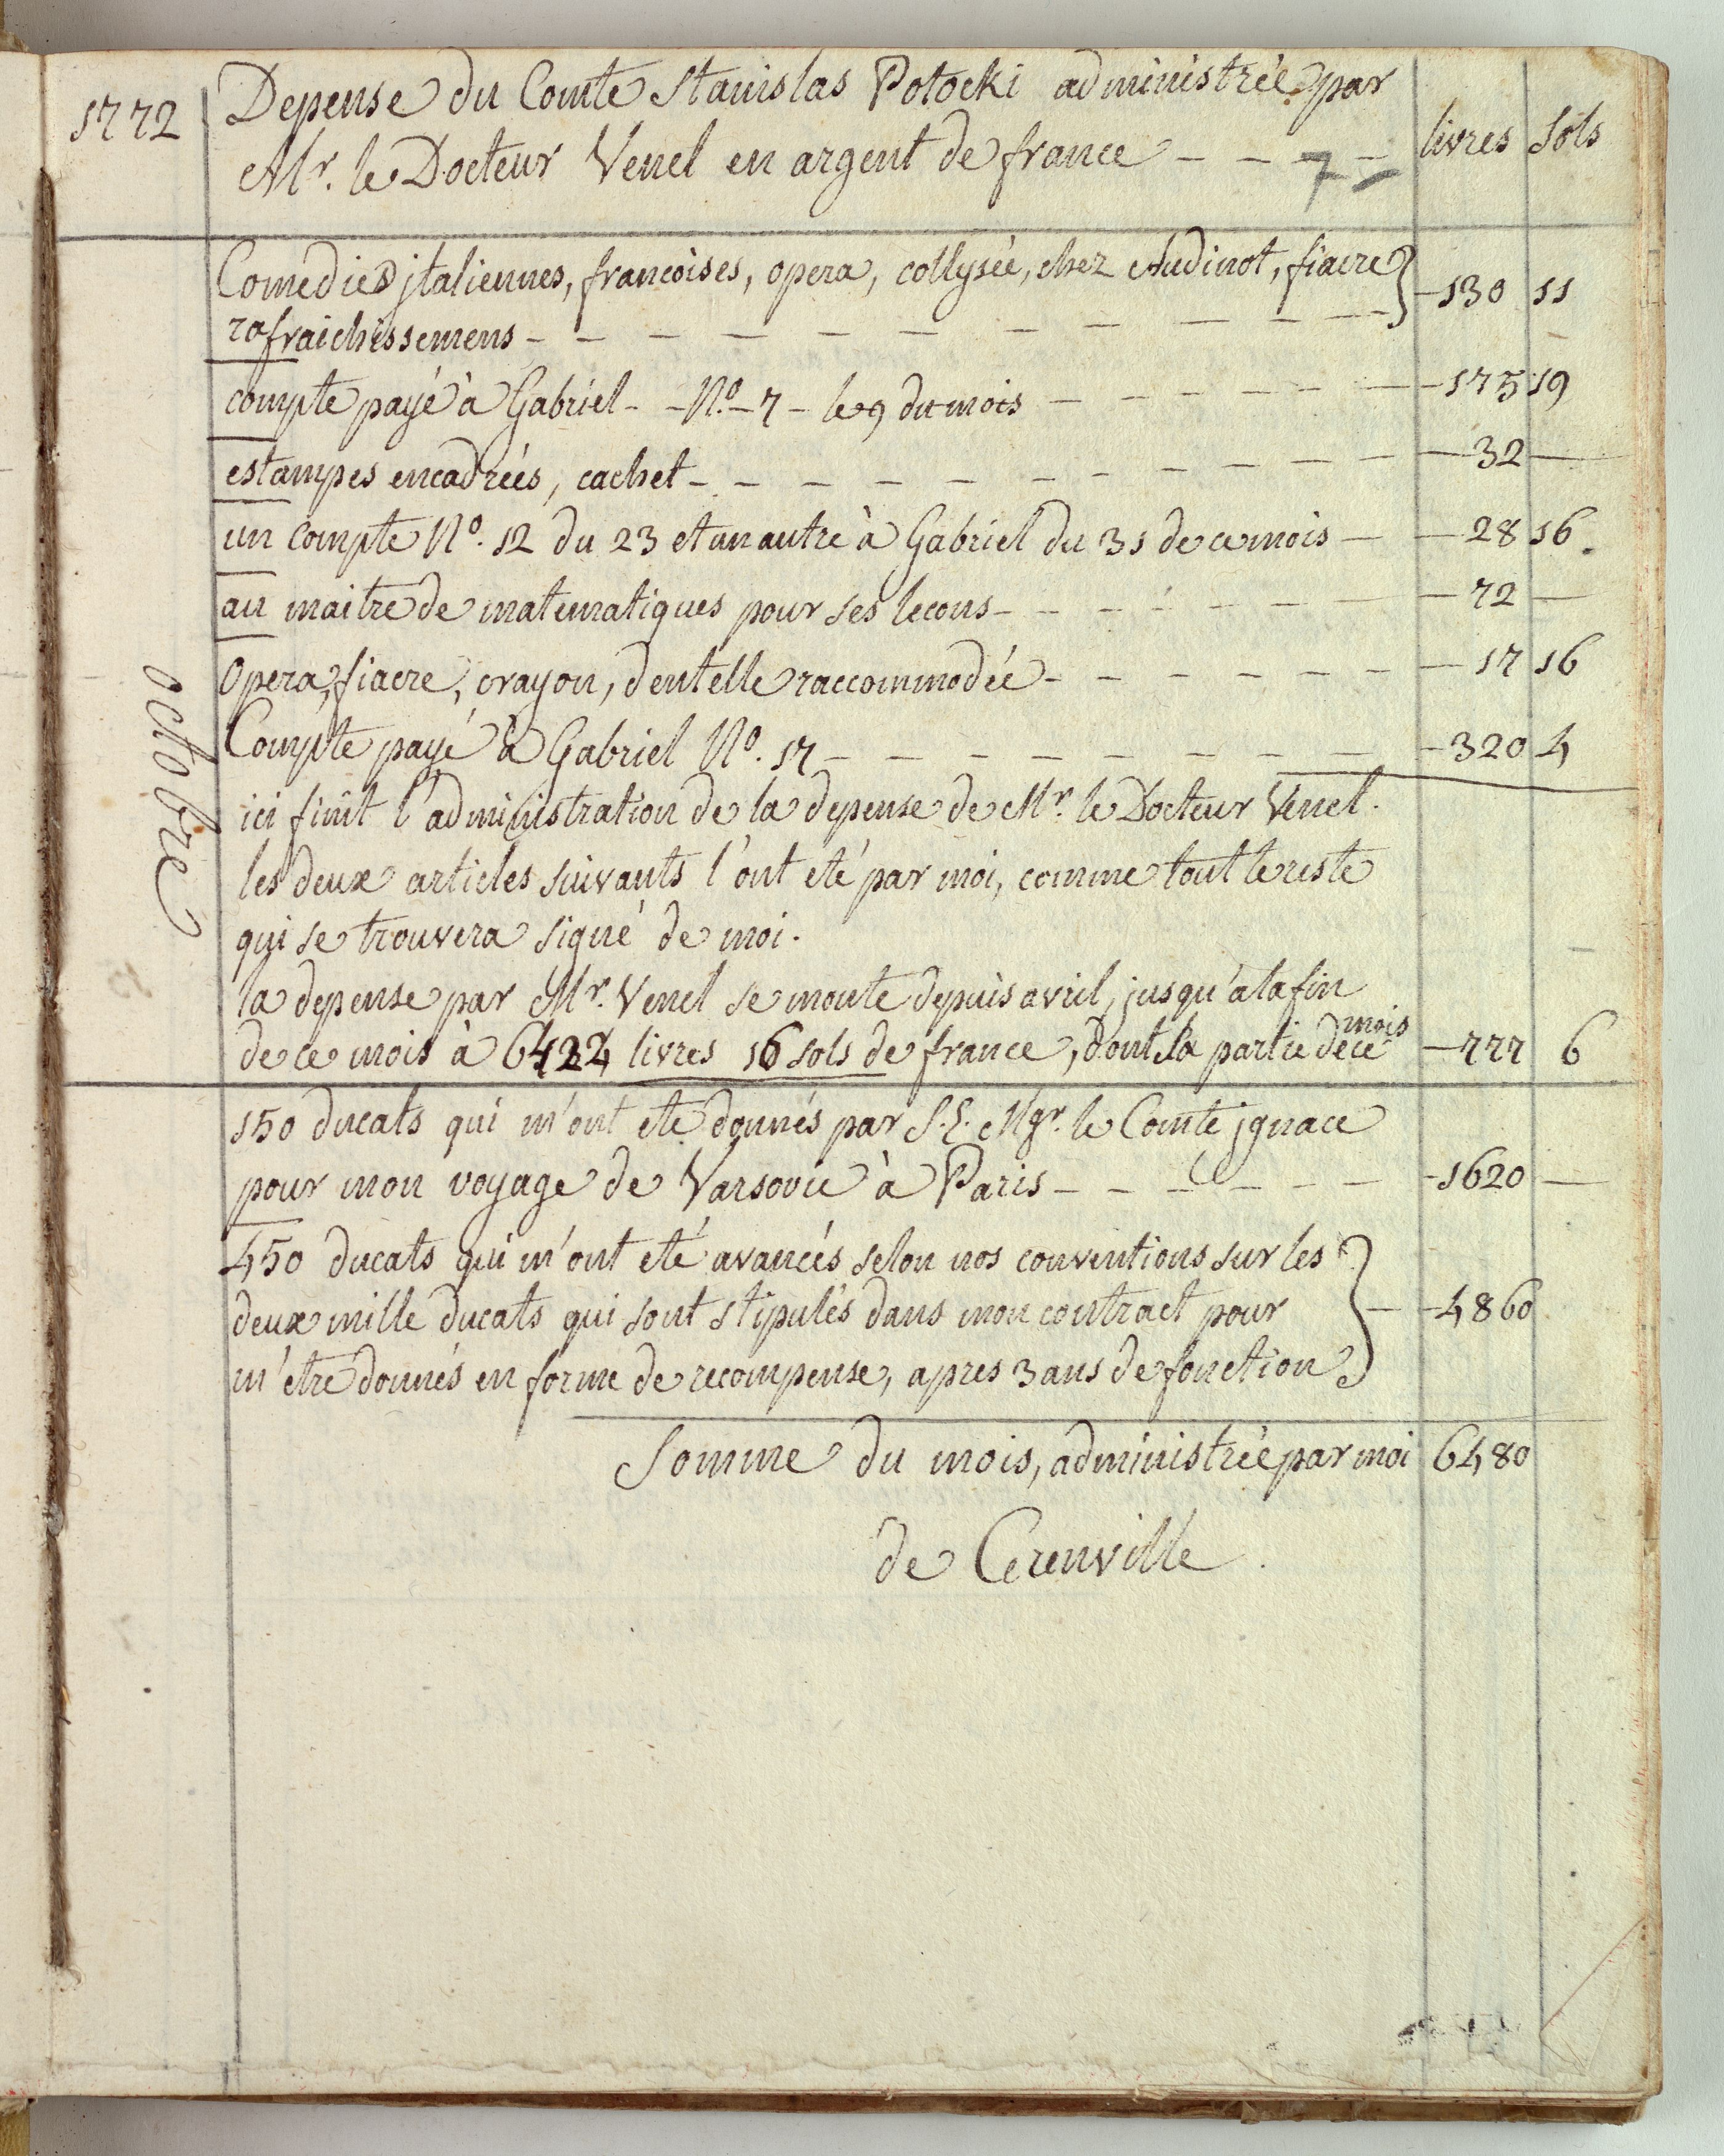 1772
Depense du Comte Stanislas Potocki administrée par
Mr. le Docteur Venel en argent de france - - - - livres sols
7
Comedies jtaliennes, francoises, opera, collysée, chez Audinot, fiacre
rafraichissemens - - - - - - - - - - - 130 11
compte payé à Gabriel - - No. - 7 - le 9 du mois - - - - - - 175 19
estampes encadrées, cachet - - - - - - - - - - 32 -
un compte No. 12 du 23 et un autre à Gabriel du 31 de ce mois - - 28 16.
au maitre de matematiques pour ses lecons - - - - - - - 72 -
octobre
opera, fiacre, crayon, dentelle raccommodée - - - - - - 17 16
Compte payé à Gabriel No. 17 - - - - - - - - 320 4
ici finit l'administration de la depense de Mr. le Docteur Venel.
les deux articles suivants l'ont eté par moi, comme tout le reste
qui se trouvera signé de moi.
la depense par Mr. Venel se monte depuis avril, jusqu'à la fin
de ce mois à livres 16 sols de france, dont la partie de ce mois - 777 6
150 ducats qui m'ont eté donnés par S. E. Mgr. le Comte jgnace
pour mon voyage de Varsovie à Paris - - - - - - 1620 -
450 ducats qui m'ont eté avancés selon nos conventions sur les
deux mille ducats qui sont stipulés dans mon contract pour - - 4860
m'etre donnés en forme de recompense, apres 3 ans de fonction
Somme du mois, administrée par moi 6480
de Cerenville.